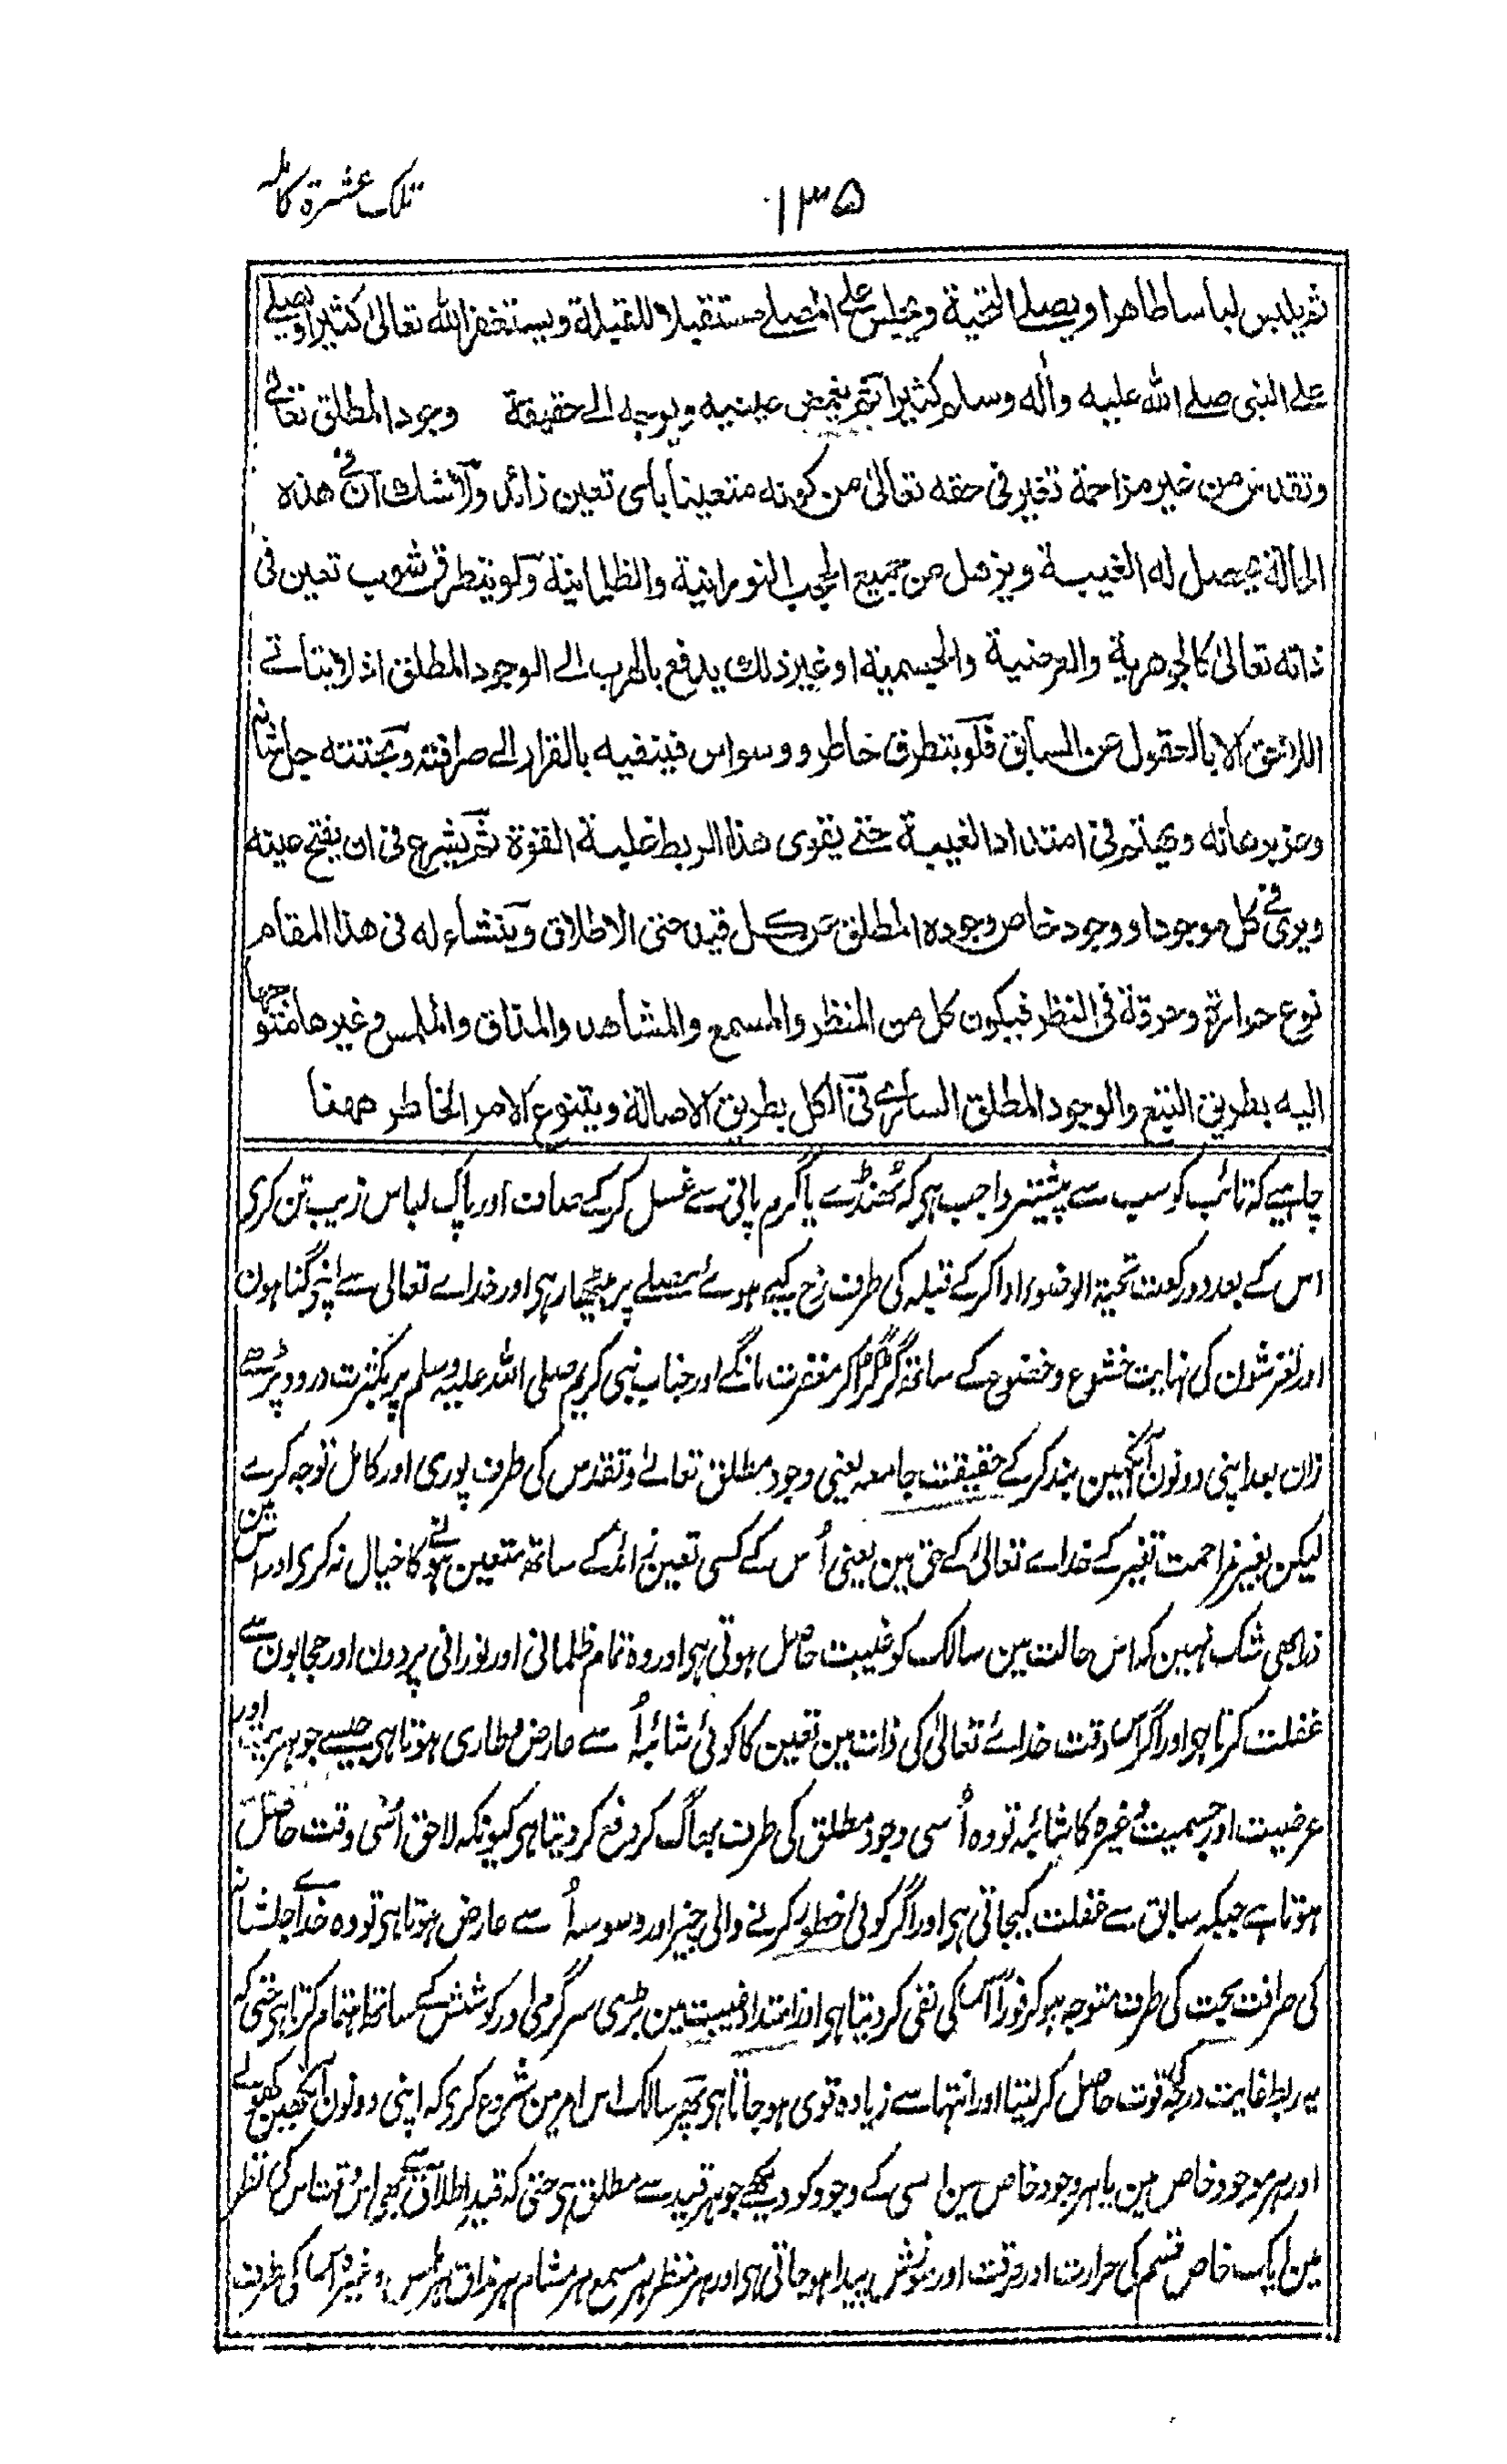 ۱۳۵
تلک عشرۃ کاملہ
ثم يلبس لباسا طاهرا ويصلے التحية ويجلس علے المصلے مستقبلا للقبلة ويستغفر الله تعالیٰ كثيرا ويصلے
علے النبی صلے الله عليه وأله وسلم كثيرا ثم يغمض عينيه ويوجه الے حقيقة وجود المطلق تعالے
وتقدس من غير مزاحمة تغير فی حقه تعالیٰ من كونه متعينا بأی تعين زائد ولا شك ان فے هذه
الحالة يحصل له الغيبة ويذهل من جميع الحجب النورانية والظلمانية ولو يتطرق شوب تعين فی
ذاته تعالیٰ كالجوهرية والعرضية والجسمية او غير ذلك يدفع بالهرب الے الوجود المطلق اذ لا يتأتے
اللاحق الا بالذهول عن السابق فلو يتطرق خاطر ووسواس فينفيه بالفرار الے صرافته وبحتته جل شانه
وعز برهانه ويهتم فی امتداد الغيبة حتے يقوی هذا الربط غلبة القوة ثم يشرع فی ان يفتح عينه
ويری فے كل موجود او وجود خاص وجوده المطلق عن كل قيد حتی الاطلاق وينشاء له فی هذا المقام
نوع حرارة وحرقة فی النظر فيكون كل من المنظر والمسمع والمشاهد والمذاق والملمس وغيرها متوجها
اليه بطريق التبع والوجود المطلق الساری فی الكل بطريق الاصالة ويتنوع الامر الخاطر ههنا
چاہیے کہ تائب کو سب سے پیشتر واجب ہی کہ ٹھنڈے یا گرم پانی سے غسل کرکے صاف اور پاک لباس زیب تن کری
اس کے بعد دو رکعت تحیۃ الوضوء ادا کرکے قبلہ کی طرف رُخ کیے ہوئے مصلے پر بیٹھا رہی اور خداے تعالی سے اپنی گناہون
اور لغزشون کی نہایت خشوع و خضوع کے ساتھ گڑگڑا کر مغفرت مانگے اور جناب نبی کریم صلی اللہ علیہ وسلم پر بکثرت درود پڑھے
زان بعد اپنی دونون آنکھین بند کرکے حقیقت جامعہ یعنی وجود مطلق تعالےٰ و تقدس کی طرف پوری اور کامل توجہ کرے
لیکن بغیر مزاحمت تغیر کے خداے تعالیٰ کے حق مین یعنی اُس کے کسی تعین زائد کے ساتھ متعین ہونے کا خیال نہ کری اور اس مین
ذرا بھی شک نہین کہ اس حالت مین سالک کو غیبت حاصل ہوتی ہی اور وہ تمام ظلمانی اور نورانی پردون اور حجابون سے
غفلت کرتا ہی اور اگر اس وقت خداے تعالیٰ کی ذات مین تعین کا کوئی شائبہ اُسے عارض و طاری ہوتا ہی جیسے جوہریت اور
عرضیت اور جسمیت وغیرہ کا شائبہ تو وہ اُسی وجود مطلق کی طرف بھاگ کر دفع کر دیتا ہی کیونکہ لاحق اُسی وقت حاصل
ہوتا ہے جبکہ سابق سے غفلت کیجاتی ہی اور اگر کوئی خطور کرنے والی چیز اور وسوسہ اُسے عارض ہوتا ہی تو وہ خداے جلشانہ
کی صرافت بحت کی طرف متوجہ ہوکر فوراً اسکی نفی کر دیتا ہی اور امتداد غیبت مین بڑی سرگرمی اور کوشش کے ساتھ اہتمام کرتا ہی حتی کہ
یہ ربط غایت درجہ قوت حاصل کر لیتا اور انتہا سے زیادہ قوی ہو جاتا ہی پھر سالک اس امر مین شروع کری کہ اپنی دونون آنکھین کھولے
اور ہر موجود خاص مین یا ہر وجود خاص مین اسی کے وجود کو دیکھے جو ہر قید سے مطلق ہی حتی کہ قید اطلاق سے بھی اس وقت اس کی نظر
مین ایک خاص قسم کی حرارت اور حرقت اور سوزش پیدا ہو جاتی ہی اور ہر منظر ہر مسمع ہر مشام ہر مذاق ہر لمس وغیرہ اسکی طرف